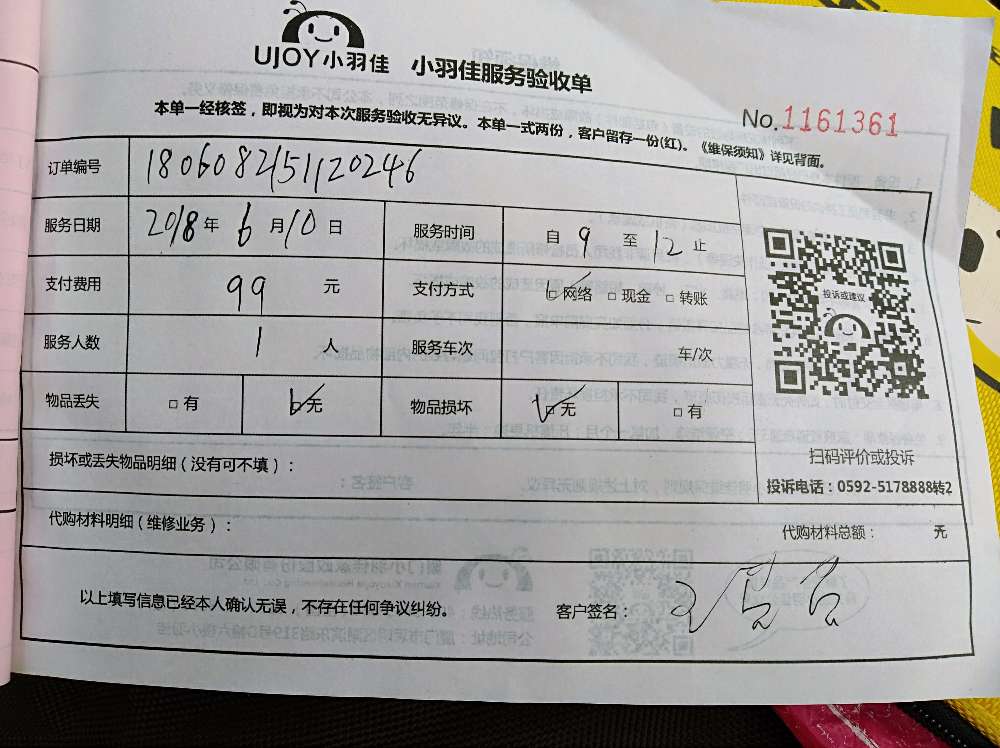 UJOY小羽佳 小羽佳服务验收单
本单一经核签，即视为对本次服务验收无异议。本单一式两份，客户留存一份(红)。《维保须知》详见背面。
No.1161361
订单编号 1806082151120246
服务日期 2018年6月10日 服务时间 自9至2止
支付费用 99 元 支付方式 ☑网络 □现金 □转账
服务人数 1 人 服务车次 车/次
物品丢失 □有 ☑无 物品损坏 ☑无 □有
投诉或建议
扫码评价或投诉
投诉电话：0592-5178888转2
损坏或丢失物品明细（没有可不填）：
代购材料明细（维修业务）： 代购材料总额： 元
以上填写信息已经本人确认无误，不存在任何争议纠纷。 客户签名：